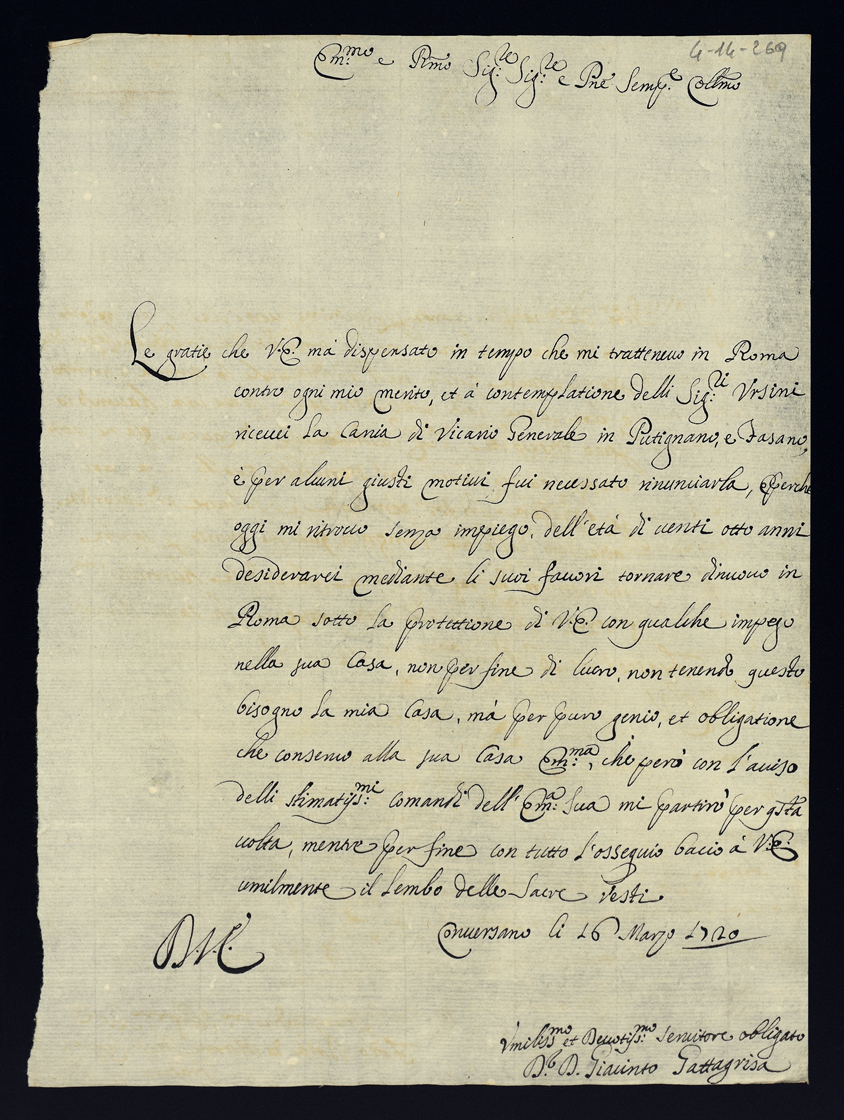 4-14-269
Em:mo e Rmo Sig:re Sig:re e Pne Semp:e Collmo
Le gratie che V.E. m'à dispensato in tempo che mi trattenevo in Roma
contro ogni mio merito, et à contemplatione delli Sig:ri Ursini
ricevei la Carica di Vicario Generale in Putignano, e Fasano,
e per alcuni giusti motivi fui necessitato rinunciarla, e perche
oggi mi ritrovo senza impiego, dell'età di venti otto anni
desiderarei mediante li suoi favori tornare di nuovo in
Roma sotto la protettione di V.E. con qualche impego
nella sua Casa, non per fine di lucro, non tenendo questo
bisogno la mia Casa, mà per puro genio, et obligatione
che conservo alla sua Casa Em:ma, che però con l'aviso
delli stimatiss:mi comandi dell'Em:a Sua mi partirò per qsta
volta, mentre per fine con tutto l'ossequio bacio à V.E.
umilmente il lembo delle Sacre Vesti
Conversano li 16 Marzo 1720
D.V.E.
Umiliss:mo et Devotiss:mo Servitore obligato
D. Giacinto Gattagrisa